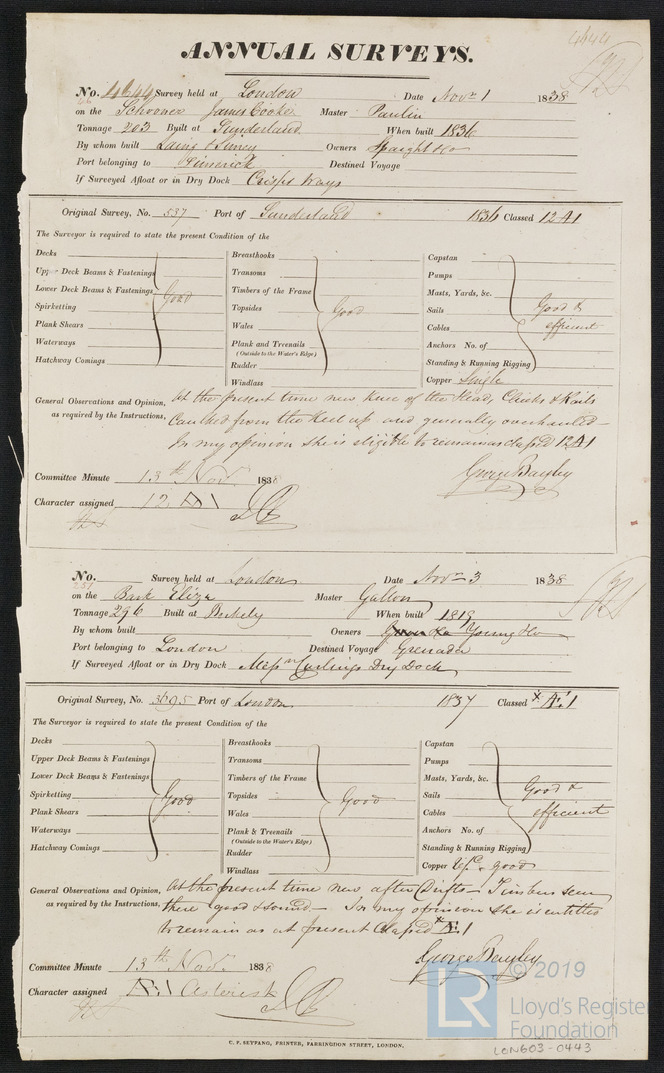 4644
ANNUAL SURVEYS.
No. 4644 Survey held at London Date Novr 1 1838
on the Schooner James Cooke Master Paulin
Tonnage 203 Built at Sunderland When built 1836
By whom built Laing & Owners Spaight & Co
Port belonging to Limerick Destined Voyage
If Surveyed Afloat or in Dry Dock Crisps Ways
Original Survey, No. 537 Port of Sunderland 1836 Classed 12 A1
The Surveyor is required to state the present Condition of the
Decks
Upper Deck Beams & Fastenings
Lower Deck Beams & Fastenings
Spirketting
Plank Shears
Waterways
Hatchway Comings
Good
Breasthooks
Transoms
Timbers of the Frame
Topsides
Wales
Plank and Treenails
(Outside to the Water's Edge)
Rudder
Windlass
Good
Capstan
Pumps
Masts, Yards, &c.
Sails
Cables
Anchors No. of
Standing & Running Rigging
Good & efficient
Copper Single
General Observations and Opinion, as required by the Instructions,
At the present time new Knee of the Head, Cheeks & Rails
Caulked from the Keel up and generally overhauled
In my opinion she is eligible to remain as classed 12 A1
George Bayley
Committee Minute 13th Novr. 1838
Character assigned 12 A1
No. Survey held at London Date Novr 3 1838
231
on the Bark Eliza Master Gallon
Tonnage 296 Built at Berkely When built 1819
By whom built Owners Young & Co
Port belonging to London Destined Voyage Grenada
If Surveyed Afloat or in Dry Dock Messrs Curlings Dry Dock
Original Survey, No. 3695 Port of London 1837 Classed * Æ 1
The Surveyor is required to state the present Condition of the
Decks
Upper Deck Beams & Fastenings
Lower Deck Beams & Fastenings
Spirketting
Plank Shears
Waterways
Hatchway Comings
Good
Breasthooks
Transoms
Timbers of the Frame
Topsides
Wales
Plank & Treenails
(Outside to the Water's Edge)
Rudder
Windlass
Good
Capstan
Pumps
Masts, Yards, &c.
Sails
Cables
Anchors No. of
Standing & Running Rigging
Good & efficient
Copper good
General Observations and Opinion, as required by the Instructions,
At the present time new after Drifts Timbers seen
there good & sound. In my opinion she is entitled
to remain as at present Classed * Æ 1
George Bayley
Committee Minute 13th Novr. 1838
Character assigned Æ 1 Asterisk
C. F. SEYFANG, PRINTER, FARRINGDON STREET, LONDON.
LR © 2019
Lloyd's Register
Foundation
LON603-0443